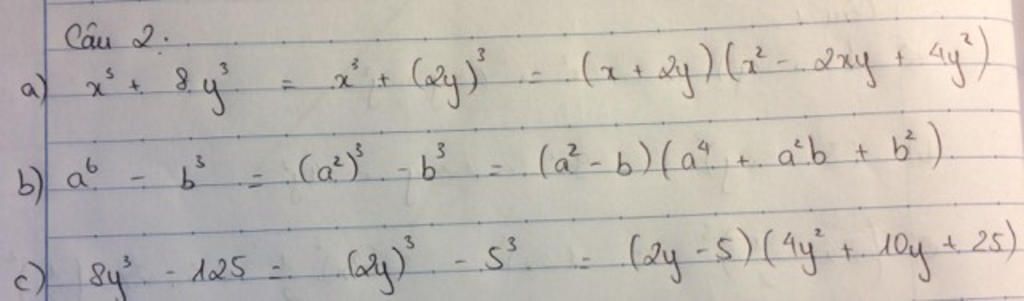 Câu 2.
a) x³ + 8y³ = x³ + (2y)³ = (x + 2y)(x² - 2xy + 4y²)
b) a⁶ - b³ = (a²)³ - b³ = (a² - b)(a⁴ + a²b + b²)
c) 8y³ - 125 = (2y)³ - 5³ = (2y - 5)(4y² + 10y + 25)